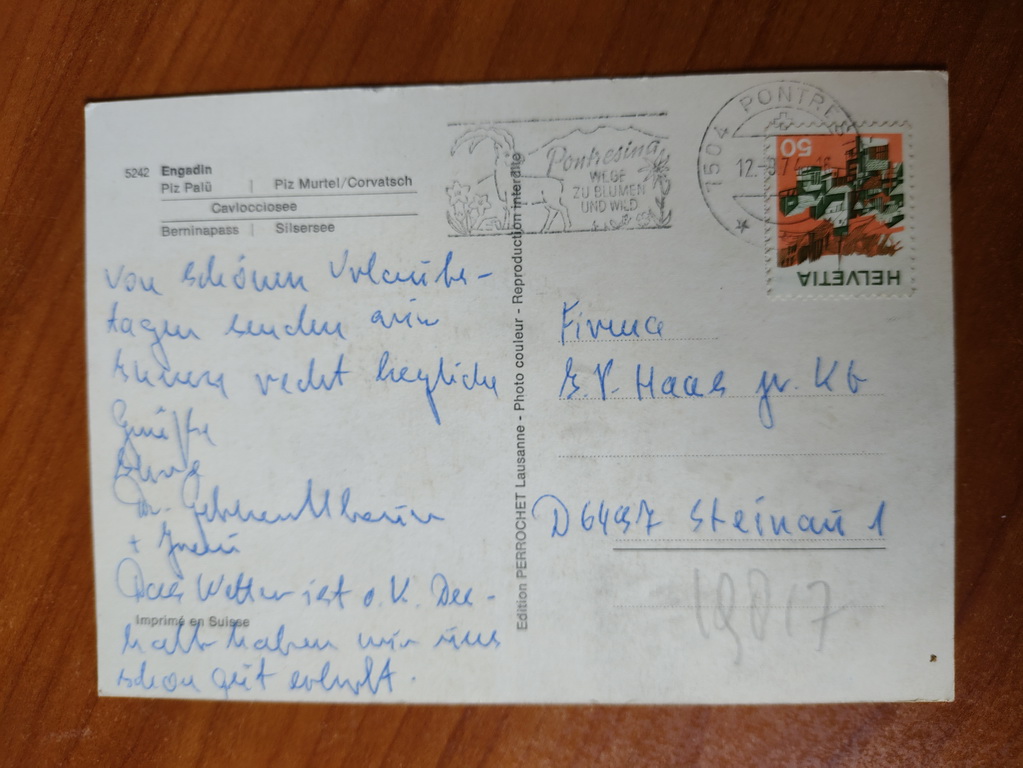 5242 Engadin
Piz Palü | Piz Murtel/Corvatsch
Cavlocciosee
Berninapass | Silsersee
Pontresina
WEGE
ZU BLUMEN
UND WILD
7504 PONTRE
12.
50
HELVETIA
Von schönen Urlaubs-
tagen senden wir
Ihnen recht herzliche
Grüße
Ihre
Dr.
+ Frau
Das Wetter ist o.K. Des-
halb haben wir uns
schon gut erholt.
Imprimé en Suisse
Edition PERROCHET Lausanne - Photo couleur - Reproduction interdite
Firma
Haas jr. KG
D 6497 Steinau 1
19817